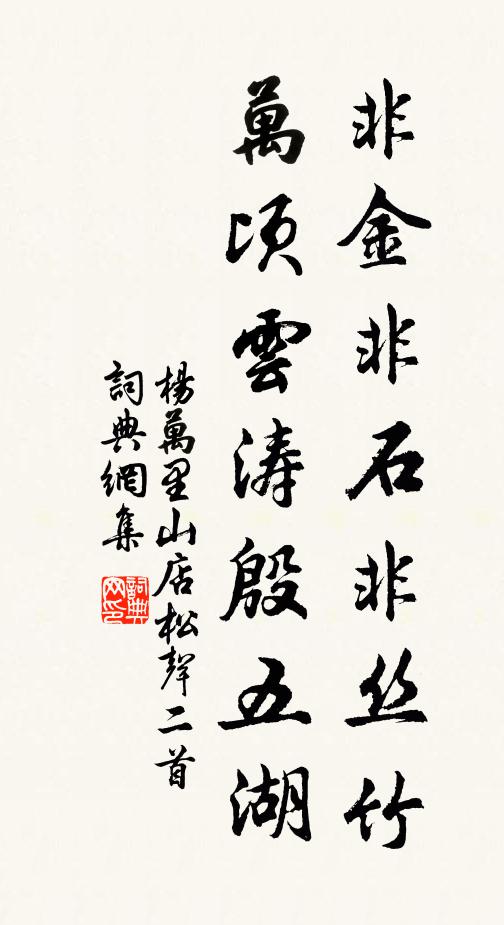 非金非石非丝竹
萬顷雲涛殷五湖
楊萬里山店松聲二首
詞典網集
詞典网印